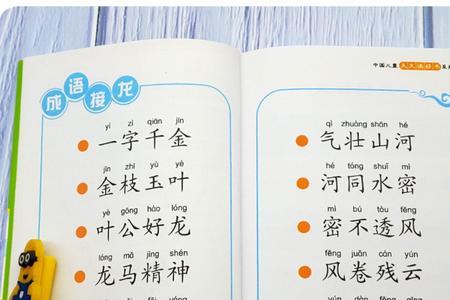 成语接龙
yí zì qiān jīn
一字千金
jīn zhī yù yè
金枝玉叶
yè gōng hào lóng
叶公好龙
lóng mǎ jīng shén
龙马精神
中国儿童天天读好书系
qì zhuàng shān hé
气壮山河
hé tóng shuǐ mì
河同水密
mì bú tòu fēng
密不透风
fēng juǎn cán yún
风卷残云
yún dàn fēng